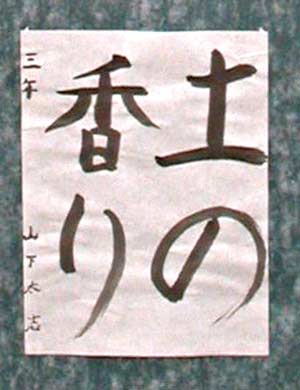 土の
香り
三年 山下太志